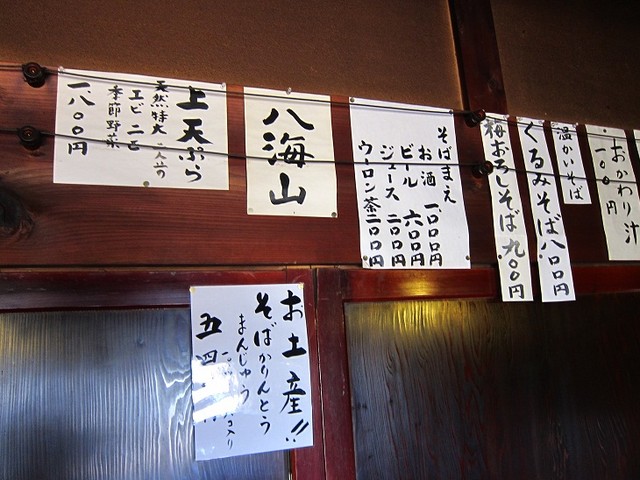 おかわり汁
一〇〇円
温かいそば
くるみそば八〇〇円
梅おろしそば九〇〇円
そばまえ
お酒 一〇〇〇円
ビール 六〇〇円
ジュース 二〇〇円
ウーロン茶二〇〇円
八海山
上天ぷら
天然特大
エビ二本
季節野菜
一、八〇〇円
お土産!!
そばかりんとう
まんじゅう
入り